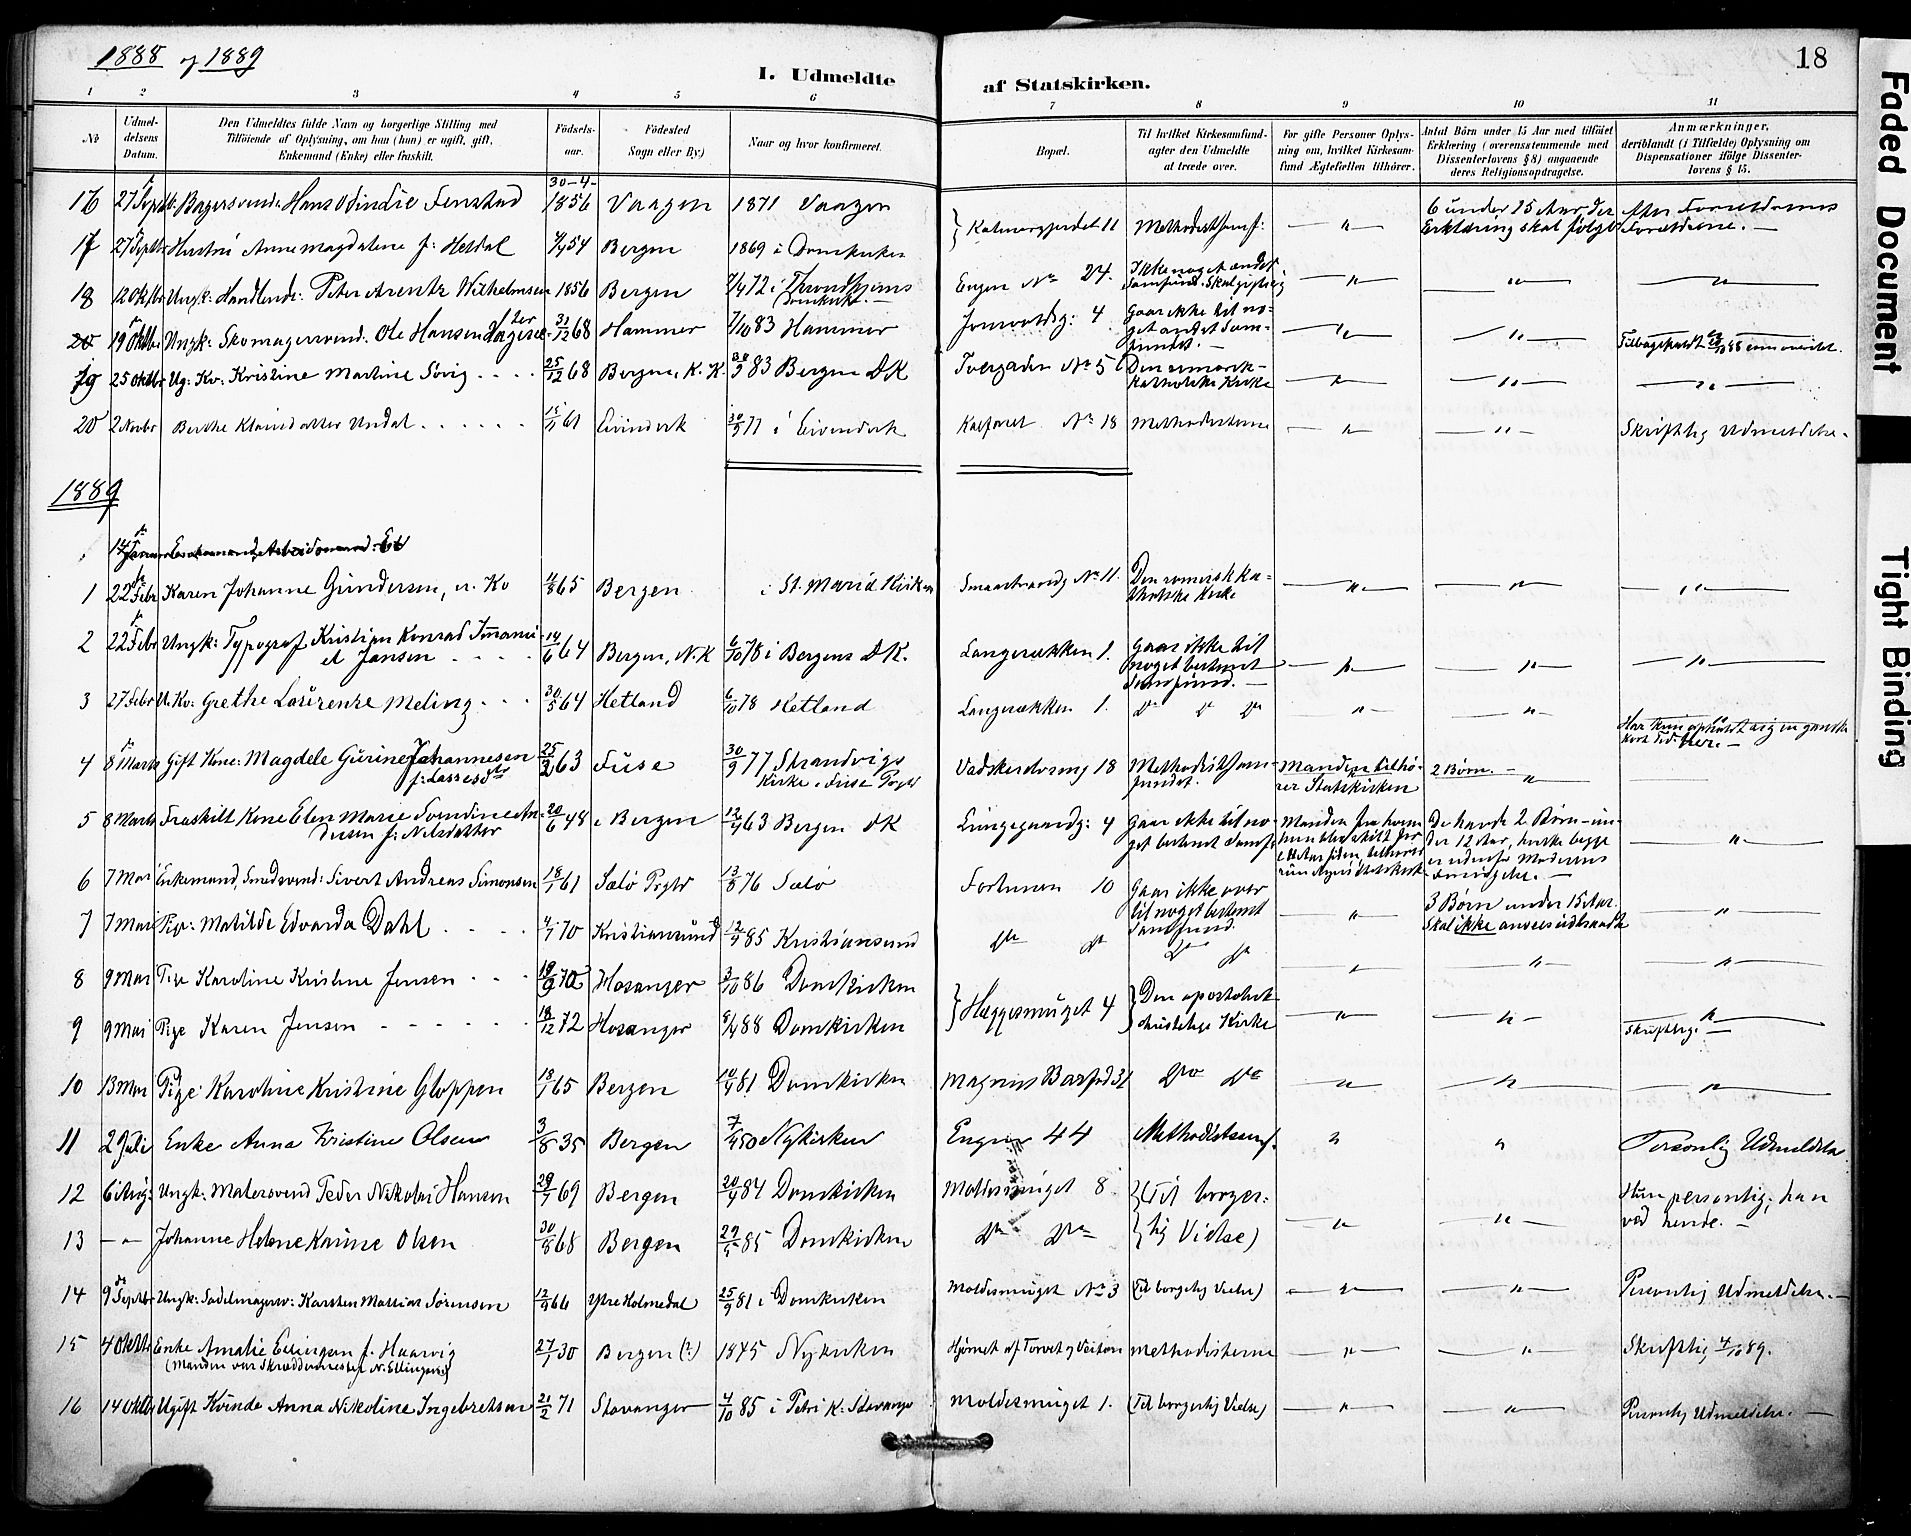 1888 og 1889
18
I. Udmeldte af Statskirken.
1 2 3 4 5 6 7 8 9 10 11
No
Udmeldelsens Datum.
Den Udmeldtes fulde Navn og borgerlige Stilling med
Tilföiende af Oplysning, om han (hun) er ugift, gift,
Enkemand (Enke) eller fraskilt.
Födselsaar.
Födested
Sogn eller By)
Naar og hvor konfirmeret.
Bopæl.
Til hvilket Kirkesamfund
agter den Udmeldte
at træde over.
For gifte Personer Oplysning om, hvilket Kirkesamfund Ægtefællen tilhörer.
Antal Börn under 15 Aar med tilföiet
Erklæring (overensstemmende med
Dissenterlovens § 8) angaaende
deres Religionsopdragelse.
Anmærkninger,
deriblandt (i Tilfælde) Oplysning om
Dispensationer ifölge Dissenterlovens § 15.
16 27 Septb: Bagersvend: Hans Odin Fenstad 30-4-1856 Vaagen 1871 Vaagen Kalmargjerdet 11 Methodistsamf: — " — 6 under 15 Aar der Erklæring skal følge
17 27 Septbr Hustru Anne Magdalene f: Heldal 54 Bergen 1869 i Domkirken
18 12 Oktbr Ungk: Handlende: Peter Arentz Wilhelmsen 1856 Bergen 72 i Throndhjems Domkirke. — Engen No 24. Ikke noget andet Samfund. — " — — " — — " —
20 19 Oktbr Ungk: Skomagersvend: Ole Hansen 31/12 68 Hammer 7/10 83 Hammer 4 Gaar ikke til noget andet Samfundet. — — " — — " —
19 25 Oktbr Ug: Kv: Kristine Martine Sörig 25/12 68 Bergen, K. K. 30/9 83 Bergen DK Tvergaden No 5 Den romerskkatholske Kirke — " — — " — — " —
20 2 Novbr Berthe Klausdatter Undal 15/1 61 Eivindvik 30/9 77 i Eivindvik Kalfaret No 18 Methodisterne — " — — " — Skriftlig Udmeldelse.
1889
1 22 Febr Karen Johanne Gundersen, u. Kv 65 Bergen i St. Mariæ Kirken Smaastrandg No 11. Den romersk katholske Kirke — " — — " — — " —
2 22 Febr Ungk: Typograf Kristian Konrad Imanuel Jansen 14/6 64 Bergen, N.K 6/10 78 i Bergens DK. Langerækken 1. Gaar ikke til noget bestemt Samfund. — — " — — " — — " —
3 27 Febr U. Kv: Grethe Laurenze Meling 30/5 64 Hetland 6/10 78 Hetland Langerækken 1. Do Do Do " — — " — Har kun opholdt sig en ganske kort Tid her. —
4 8 Marts Gift Kone: Magdele Gurine Johannesen f: Lassesdtr 25/2 63 Fuse 30/9 77 Strandvigs Kirke i Fuse Pgld Vadskersvang 18 Methodistsamfundet. Manden tilhører Statskirken 2 Børn. — "
5 8 Marts Fraskilt Kone Elen Marie Severdine Andersen f: Nilsdatter 20/6 48 i Bergen 12/4 63 Bergen DK Lungegaardg: 4 Gaar ikke til noget bestemt Samf. Manden fra hvem hun blev skilt for Aar siden, De havde 2 Børn under 12 Aar, hvilke begge er udenfor Moderens — " —
6 7 Mai Enkemand, Smedsvend: Sivert Andreas Simonsen 18/1 61 Sælø Pgld 13/8 76 Sælø Fortunen 10 Gaar ikke over til noget bestemt Samfund. — " — 3 Børn under 15 Aar. Skal ikke ansees udtraadte — " —
7 7 Mai Pige: Matilde Edvarda Dahl 4/1 70 Kristiansund 12/4 85 Kristiansund Do Do Do Do — " — — " — — " —
8 9 Mai Pige Karoline Kristine Jensen 19/9 70 Hosanger 3/10 86 Domkirken Hæggesmuget 4 Den apostolisk christelige Kirke
9 9 Mai Pige Karen Jensen 18/12 72 Hosanger 88 Domkirken — " — — " — — " — Skriftlig. —
10 13 Mai Pige: Karoline Kristine Gloppen 18/1 65 Bergen 10/4 81 Domkirken Magnus Barfod 31 Do Do — " — — " — — " —
11 2 Juli Enke Anna Kristine Olsen 3/8 35 Bergen 7/4 50 Nykirken Engen 44 Methodistsamf. " " Personlig Udmeldelse
12 6 Aug: Ungk: Malersvend Peder Nikolai Hansen 29/1 69 Bergen 20/4 84 Domkirken Moldesmuget 8. (Til borgerlig Vielse) Hun personlig; han ved hende. —
13 — " — Johanne Helene Kamine Olsen 30/8 68 Bergen 29/5 85 Domkirken Do Do — " — — " —
14 9 Septbr Ungk: Sadelmagersv: Karsten Mathias Sörensen 12/9 66 Ytre Holmedal 25/9 81 i Domkirken Moldesmuget No 3 (Til borgerlig Vielse) — " — — " — Personlig Udmeldelse. —
15 4 Oktbr Enke Amalie Ellingsen f. Haarvig
(Manden var Skræddermester N. Ellingsen) 27/1 30 Bergen (?) 1845 Nykirken Hjørnet af Torvet og Methodisterne — " — — " — Skriftlig 4/10 89.
16 14 Oktbr Ugift Kvinde Anna Nikoline Ingebretsen 21/2 71 Stavanger 4/10 85 i Petri K: Stavanger Moldesmuget 1. (Til borgerlig Vielse) — " — — " — Personlig Udmeldelse. —
Faded Document
Tight Binding